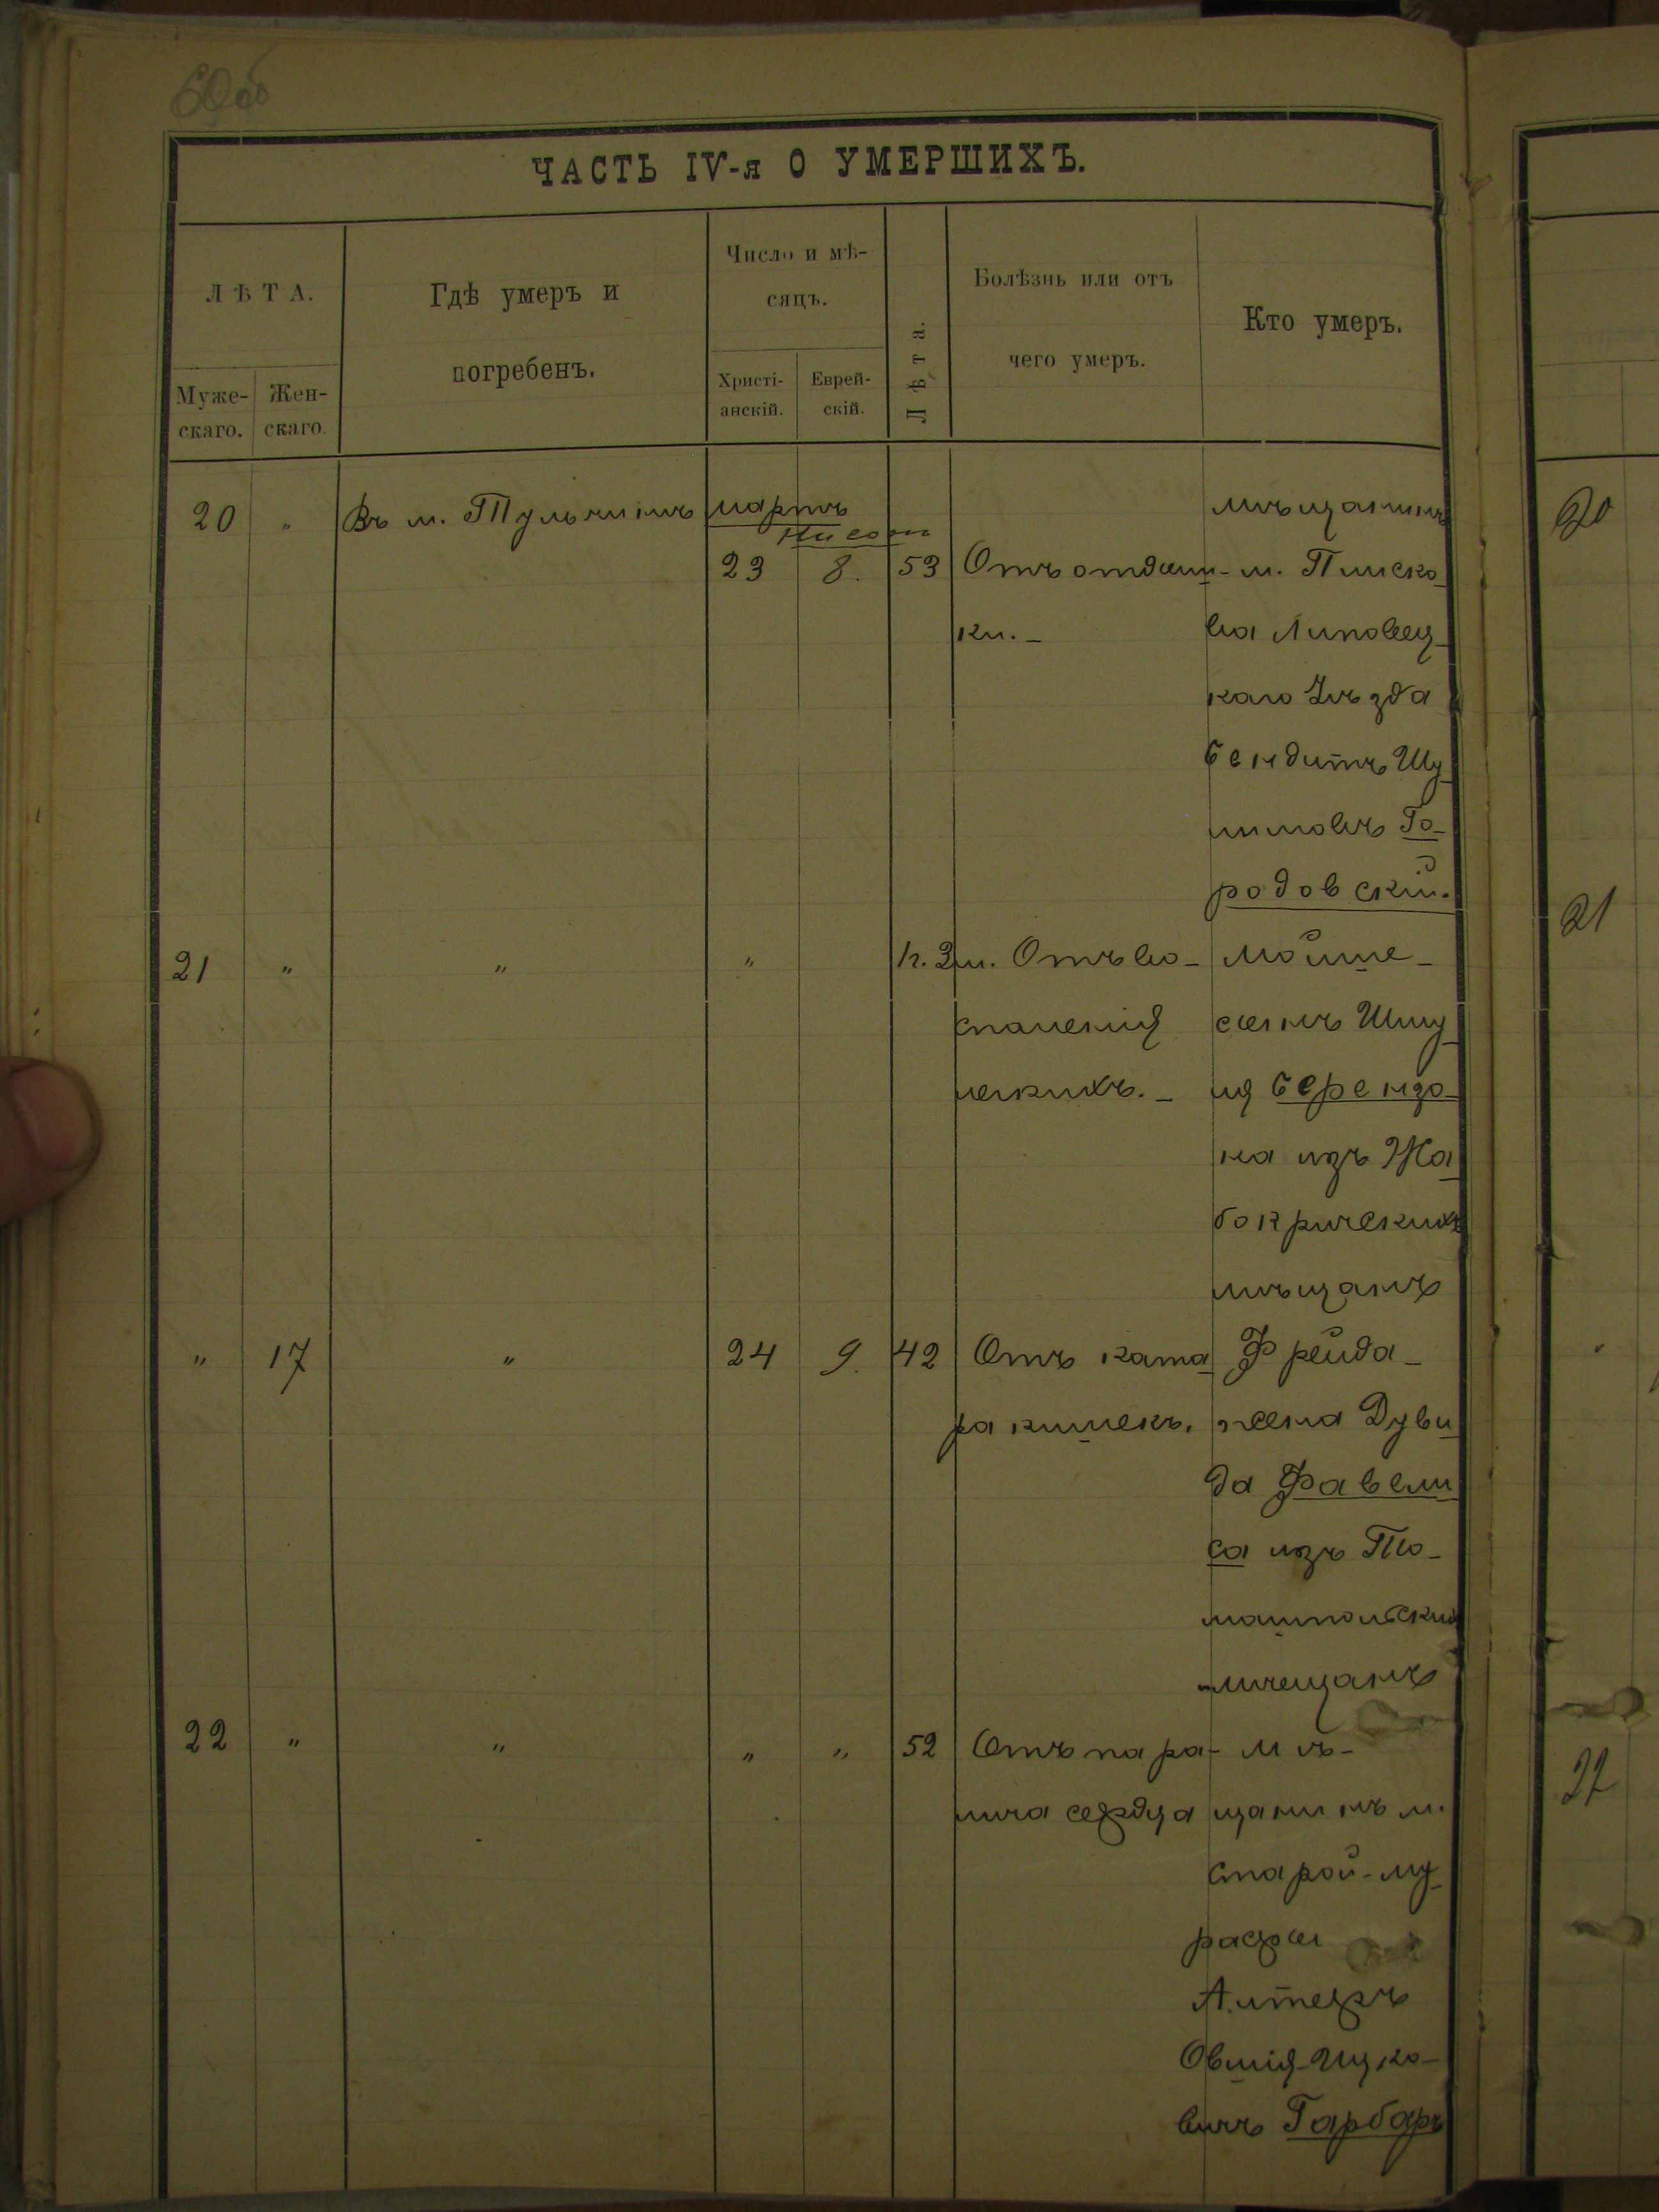 60об
ЧАСТЬ IV-я О УМЕРШИХЪ.
ЛѢТА.
Муже-
скаго.
Жен-
скаго.
Гдѣ умеръ и
погребенъ.
Число и мѣ-
сяцъ.
Христі-
анскій.
Еврей-
скій.
Лѣта.
Болѣзнь или отъ
чего умеръ.
Кто умеръ.
20 " Въ м. Тульчинѣ мартъ мѣщанинъ
Нисон
23 8. 53 Отъ отдыш- м. Писко-
ки. - ва Липовец-
каго Уѣзда
Бендитъ Шу-
лимовъ Го-
родовскій.
21 " " " 1 г. 2 м. Отъ во- Мойше -
спаленія сынъ Шму-
легкихъ. - ля Серензо-
на изъ Жа-
бокричскихъ
мѣщанъ
" 17 " 24 9. 42 Отъ ката- Фрейда -
ра кишекъ. жена Дуви-
да Фавели-
са изъ То-
машпольских
мѣщанъ
22 " " " " 52 Отъ пара- мѣ-
лича сердца щанинъ м.
Старой-Му-
рафы
Алтеръ
Овшія-Ицко-
вичъ Гарбаръ
20
21
"
22